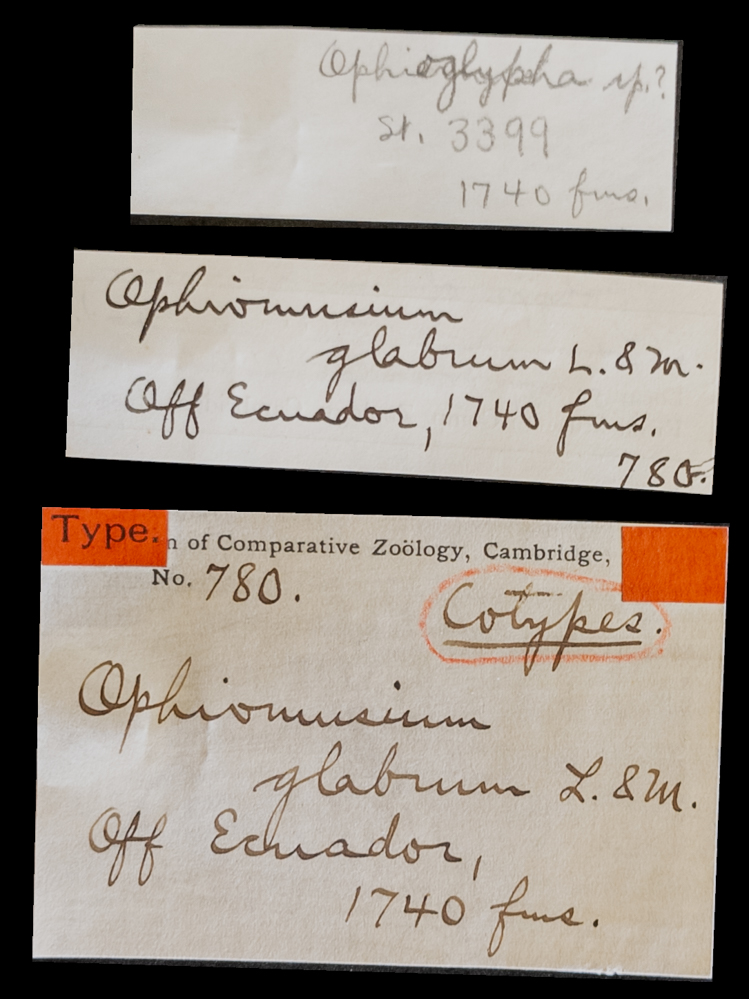 Ophioglypha sp.?
St. 3399
1740 fms.
Ophiomusium
glabrum L. & M.
Off Ecuador, 1740 fms.
780.
Type.
n of Comparative Zoölogy, Cambridge,
No. 780.
Cotypes.
Ophiomusium
glabrum L. & M.
Off Ecuador,
1740 fms.